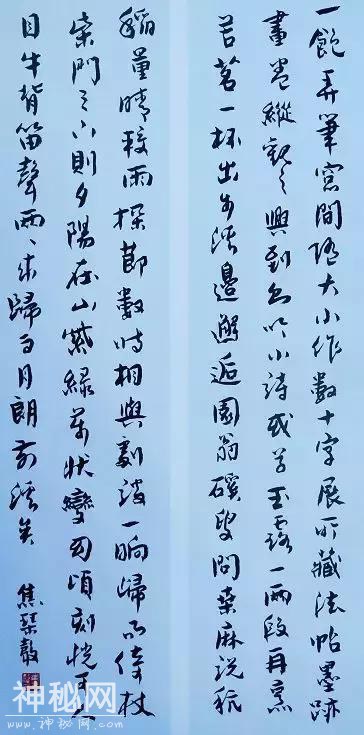 一飽弄筆窗間隨大小作數十字展所藏法帖墨跡
畫卷縱觀之興到則吟小詩或草玉露一兩段再烹
苦茗一杯出步溪邊邂逅園翁磎叟問桑麻說秔
稻量晴較雨探節數時相與劇談一晌歸而倚杖
柴門之下則夕陽在山紫綠萬狀變幻頃刻恍可人
目牛背笛聲兩兩來歸而月朗前溪矣
焦琹
神秘网
www.xinshenmi.com